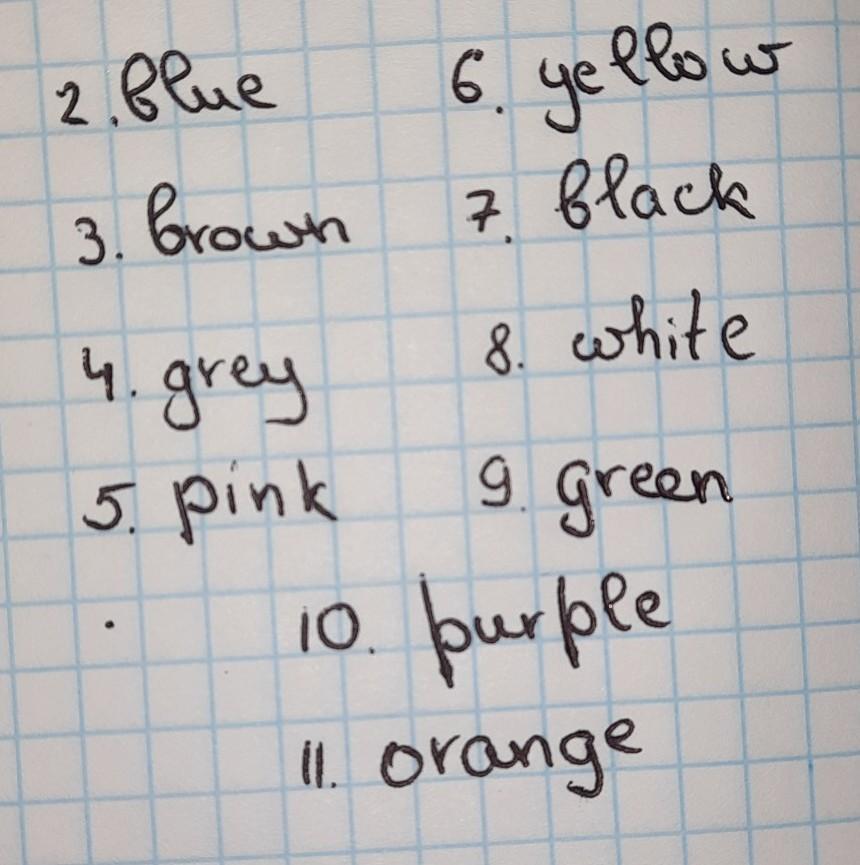 2. blue
3. brown
4. grey
5. pink
6. yellow
7. black
8. white
9. green
10. purple
11. orange